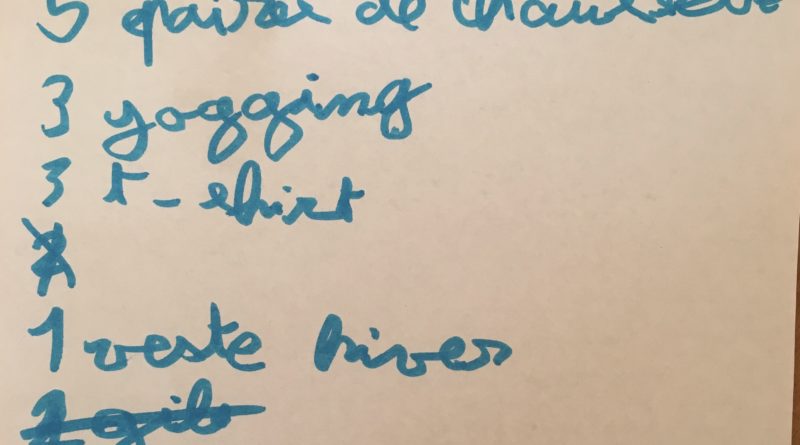 5 paires de chaussett
3 yogging
3 t-shirt
1 veste hiver